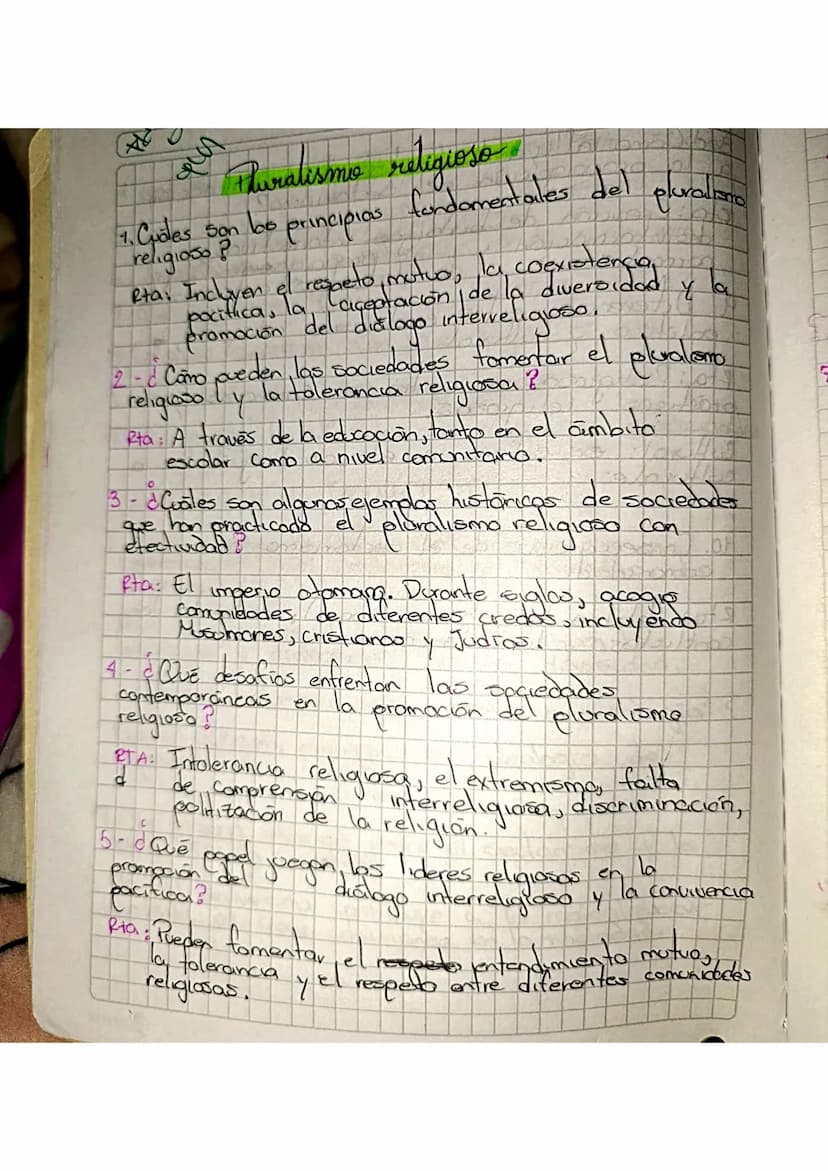 Pluralismo religioso
1. Cuáles son los principios fundamentales del pluralismo
religioso?
Rta: Incluyen el respeto mutuo, la coexistencia
pacífica, la aceptación de la diversidad y la
promoción del diálogo interreligioso.
2-¿Cómo pueden las sociedades fomentar el pluralismo
religioso y la tolerancia religiosa?
Rta: A través de la educación, tanto en el ámbito
escolar como a nivel comunitario.
3-¿Cuáles son algunos ejemplos históricos de sociedades
que han practicado el pluralismo religioso con
efectividad?
Rta: El imperio otomano. Durante siglos, acogió
comunidades de diferentes credos, incluyendo
Musulmanes, cristianos y Judíos.
4-¿Qué desafíos enfrentan las sociedades
contemporáneas en la promoción del pluralismo
religioso?
RTA: Intolerancia religiosa, el extremismo, falta
d de comprensión interreligiosa, discriminación,
politización de la religión.
5-¿Qué papel juegan los líderes religiosos en la
promoción del diálogo interreligioso y la convivencia
pacífica?
Rta: Pueden fomentar el respeto entendimiento mutuo,
la tolerancia y el respeto entre diferentes comunidades
religiosas.